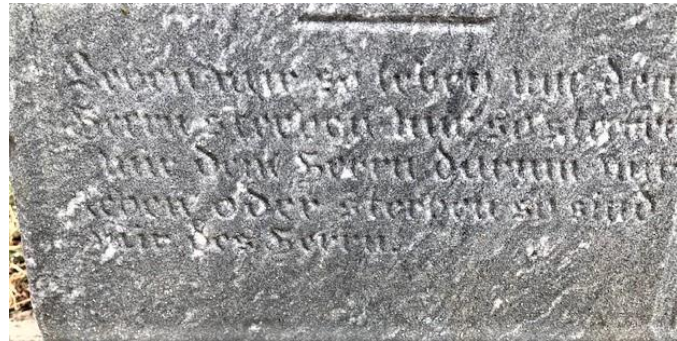 Leben wir so leben wir dem
Herrn sterben wir so sterben
wir dem Herrn darum wir
leben oder sterben so sind
wir des Herrn.